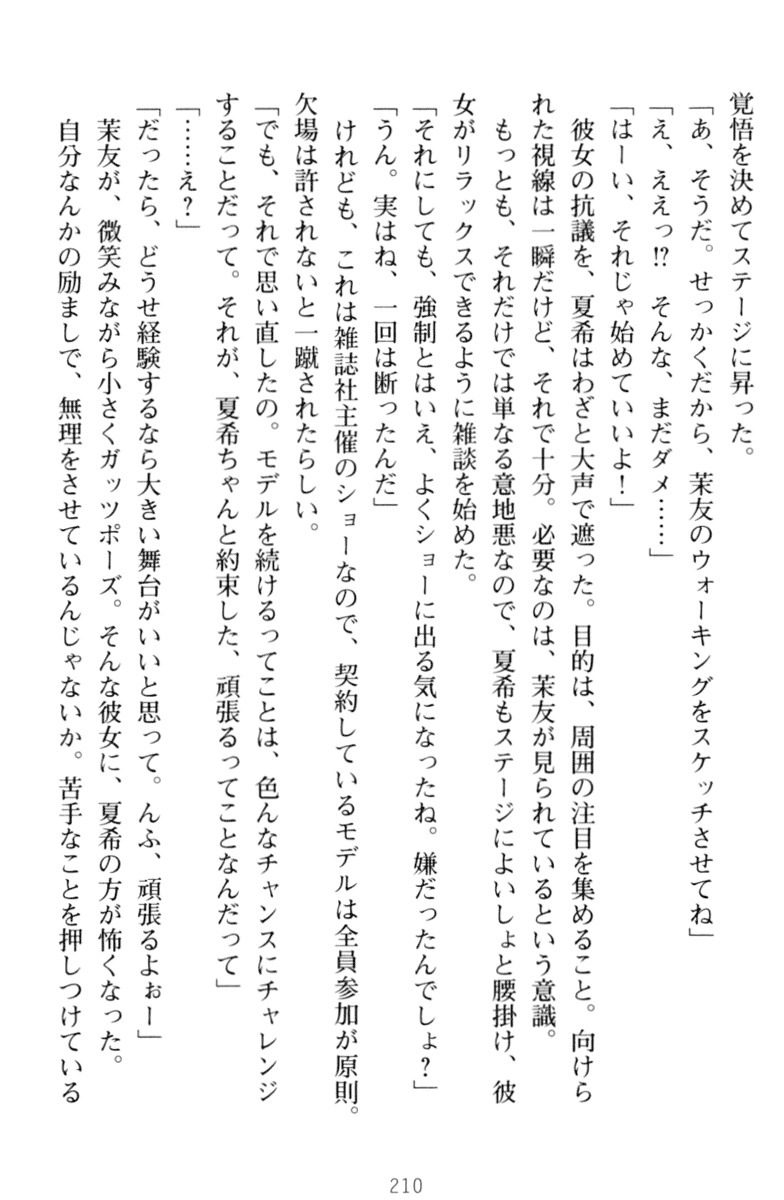 覚悟を決めてステージに昇った。
「あ、そうだ。せっかくだから、茉友のウォーキングをスケッチさせてね」
「え、ええっ!?　そんな、まだダメ……」
「はーい、それじゃ始めていいよ！」
　彼女の抗議を、夏希はわざと大声で遮った。目的は、周囲の注目を集めること。向けら
れた視線は一瞬だけど、それで十分。必要なのは、茉友が見られているという意識。
　もっとも、それだけでは単なる意地悪なので、夏希もステージによいしょと腰掛け、彼
女がリラックスできるように雑談を始めた。
「それにしても、強制とはいえ、よくショーに出る気になったね。嫌だったんでしょ？」
「うん。実はね、一回は断ったんだ」
　けれども、これは雑誌社主催のショーなので、契約しているモデルは全員参加が原則。
欠場は許されないと一蹴されたらしい。
「でも、それで思い直したの。モデルを続けるってことは、色んなチャンスにチャレンジ
することだって。それが、夏希ちゃんと約束した、頑張るってことなんだって」
「……え？」
「だったら、どうせ経験するなら大きい舞台がいいと思って。んふ、頑張るよぉー」
　茉友が、微笑みながら小さくガッツポーズ。そんな彼女に、夏希の方が怖くなった。
　自分なんかの励ましで、無理をさせているんじゃないか。苦手なことを押しつけている
210